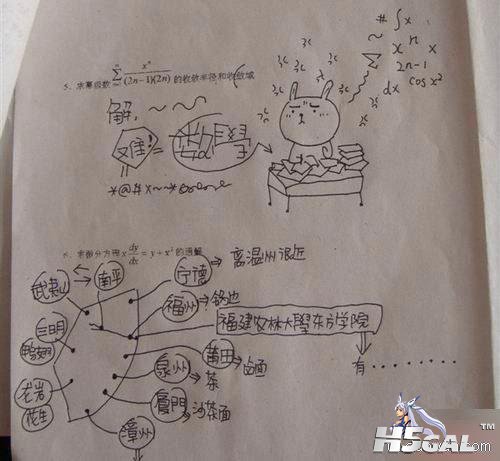 # ∫ x
x n x
2n-1
dx cos x²
5、求幂级数 ∑_{n=1}^{∞} x^n/((2n-1)(2n)) 的收敛半径和收敛域
解:
难! =
*@#x~~*
6、求微分方程 x dy/dx = y + x² 的通解
武夷山
南平
宁德 ⇒ 离温州很近
福州 ⇒
福建农林大學东方学院
三明
鸭翅
莆田 ⇒ 卤面
有········
泉州 ⇒ 茶
龙岩
花生
厦門 ⇒ 沙茶面
漳州
H5GAL™